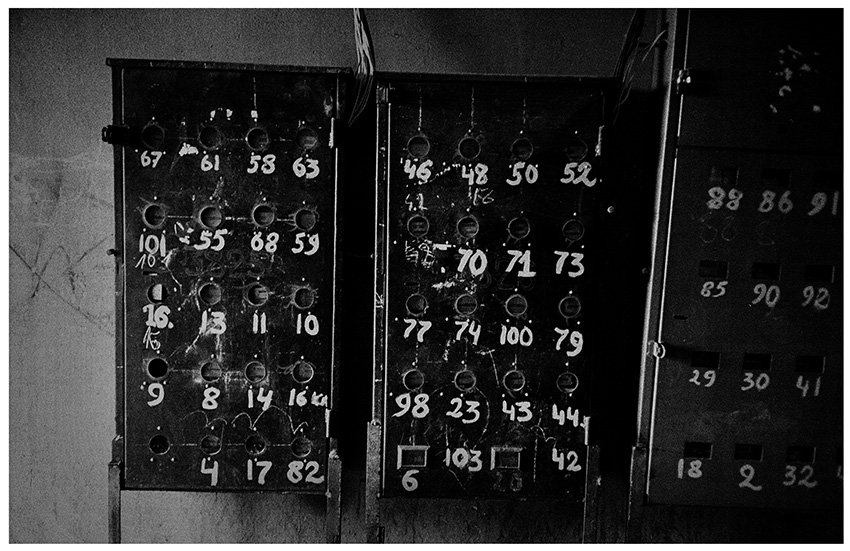 67 61 58 63
101 55 68 59
101
16. 13 11 10
16
9 8 14 16 KA
4 17 82
46 48 50 52
70 71 73
77 74 100 79
98 23 43 44
6 103 42
88 86 91
85 90 92
29 30 41
18 2 32